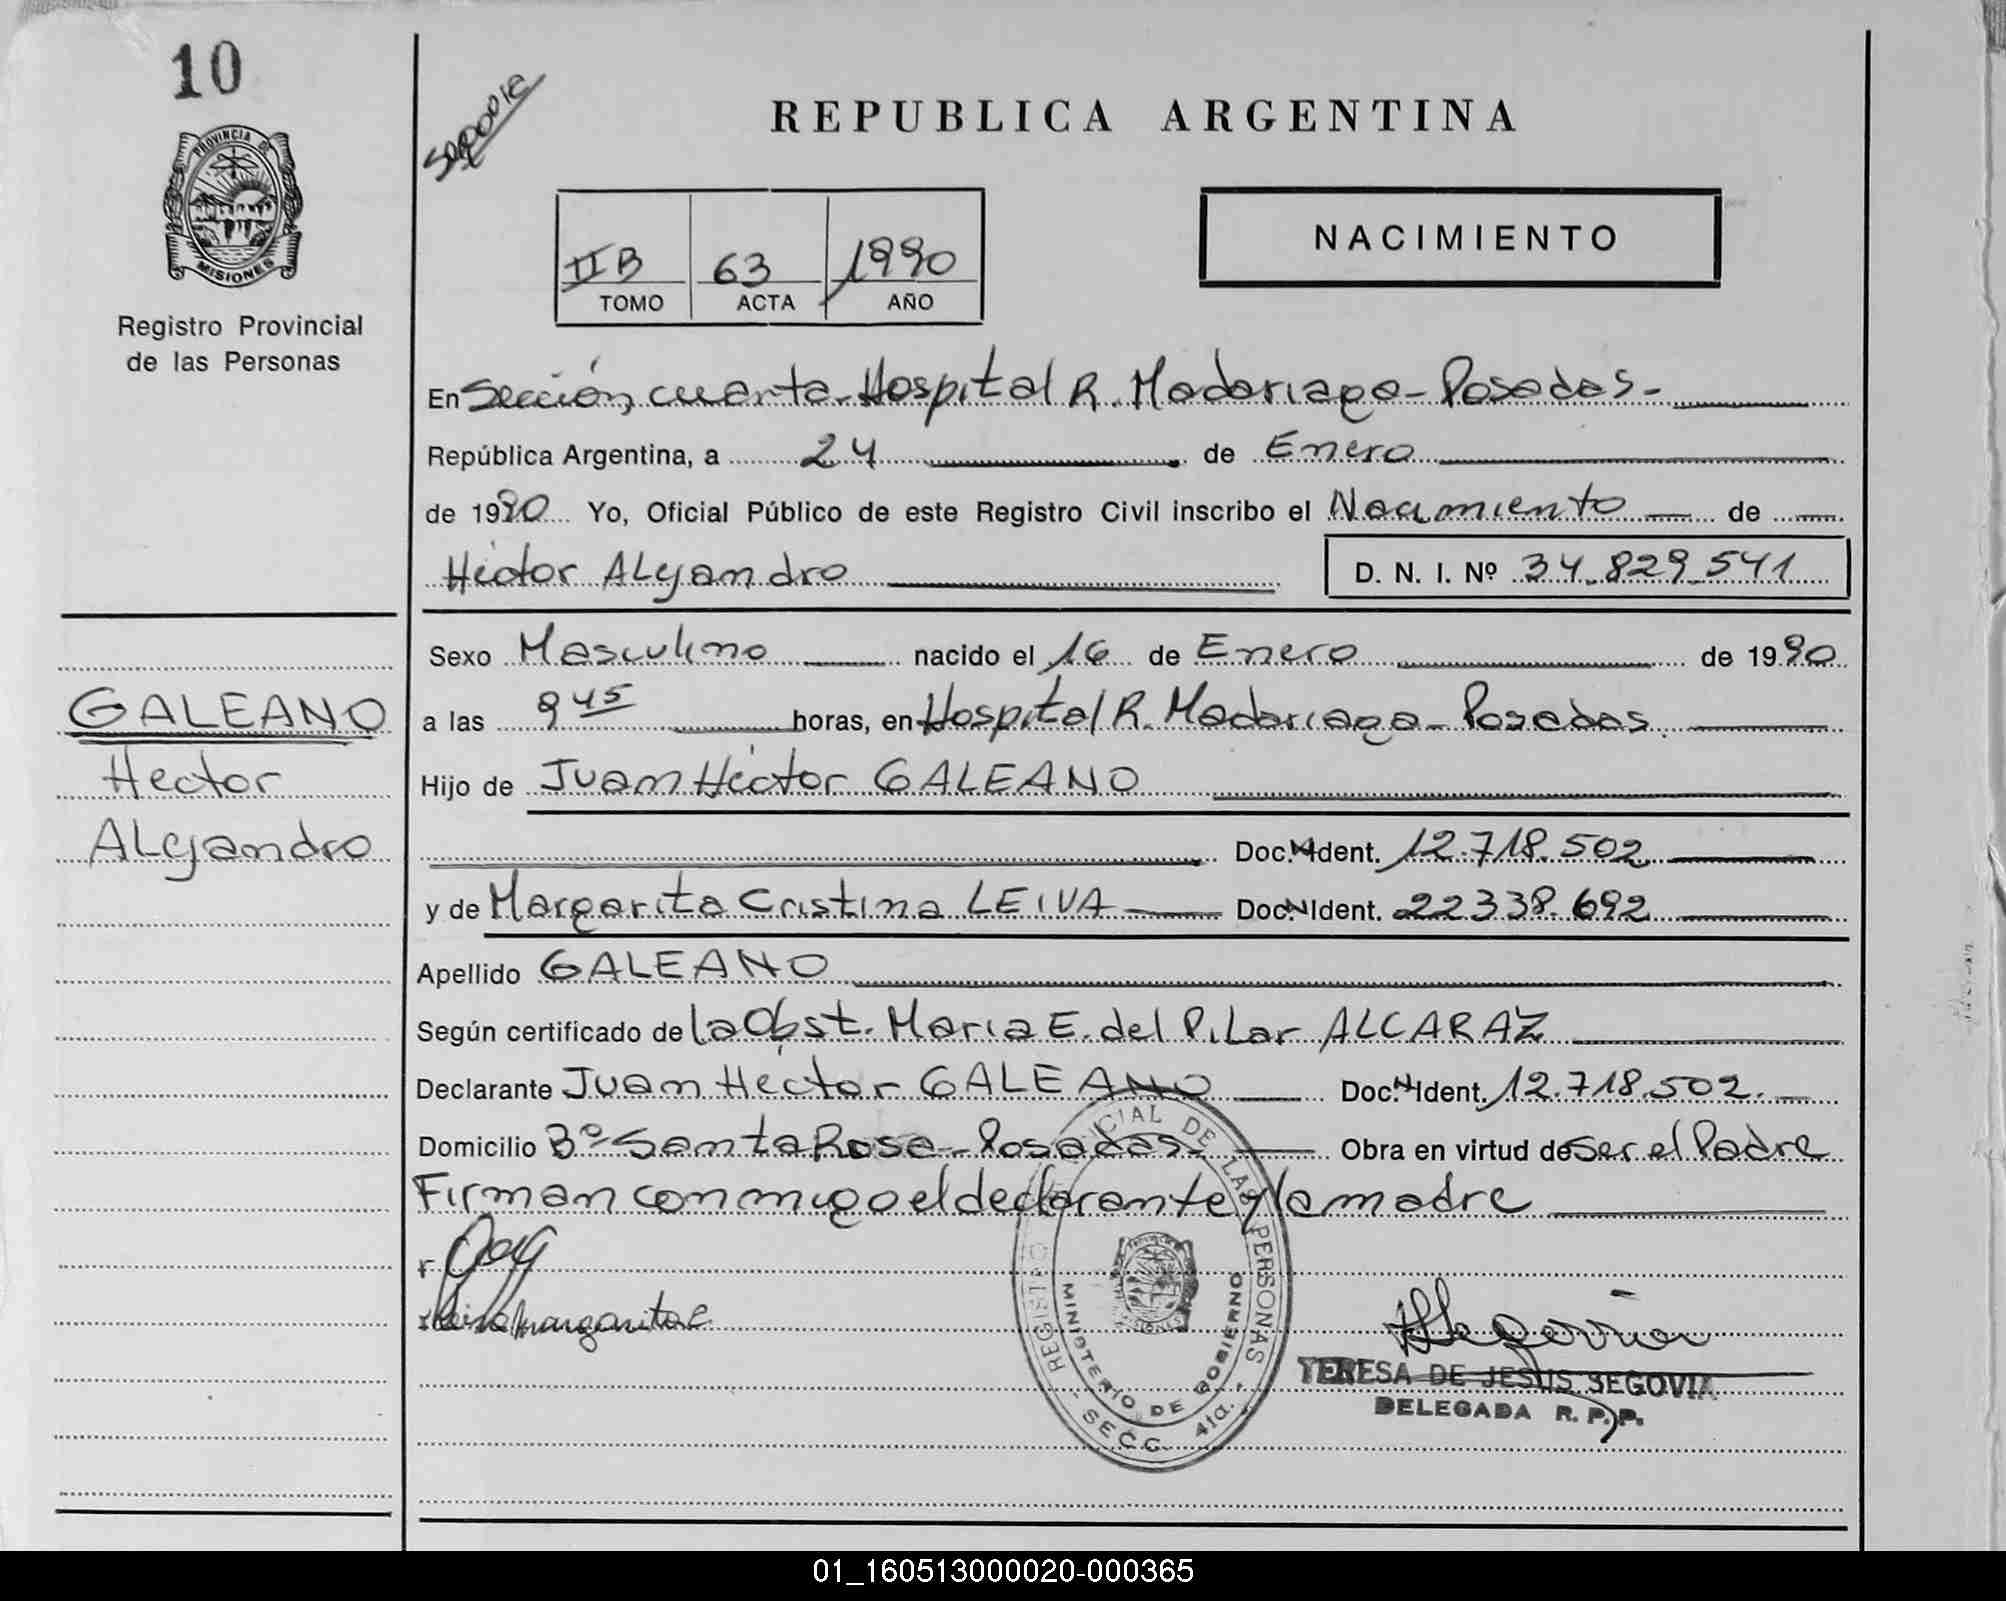 10
PROVINCIA DE
MISIONES
Registro Provincial
de las Personas
REPUBLICA ARGENTINA
II B 63 1990
TOMO ACTA AÑO
NACIMIENTO
En Sección cuarta - Hospital R. Madariaga - Posadas -
República Argentina, a 24 de Enero
de 1990 Yo, Oficial Público de este Registro Civil inscribo el Nacimiento de
Héctor Alejandro D. N. I. Nº 34.829.541
Sexo Masculino nacido el 16 de Enero de 1990
GALEANO
Hector
Alejandro
a las 9 45 horas, en Hospital R. Madariaga - Posadas.
Hijo de Juan Héctor GALEANO
Doc. N Ident. 12.718.502
y de Margarita Cristina LEIVA Doc. N Ident. 22338.692
Apellido GALEANO
Según certificado de la Obst. Maria E. del Pilar ALCARAZ
Declarante Juan Héctor GALEANO Doc. N Ident. 12.718.502.
Domicilio Bº Santa Rosa - Posadas - Obra en virtud de ser el Padre
Firman conmigo el declarante y la madre
Leiva Margarita C
REGISTRO PROVINCIAL DE LAS PERSONAS
MINISTERIO DE GOBIERNO
SECC. 4ta.
TERESA DE JESUS SEGOVIA
DELEGADA R. P. P.
01_160513000020-000365